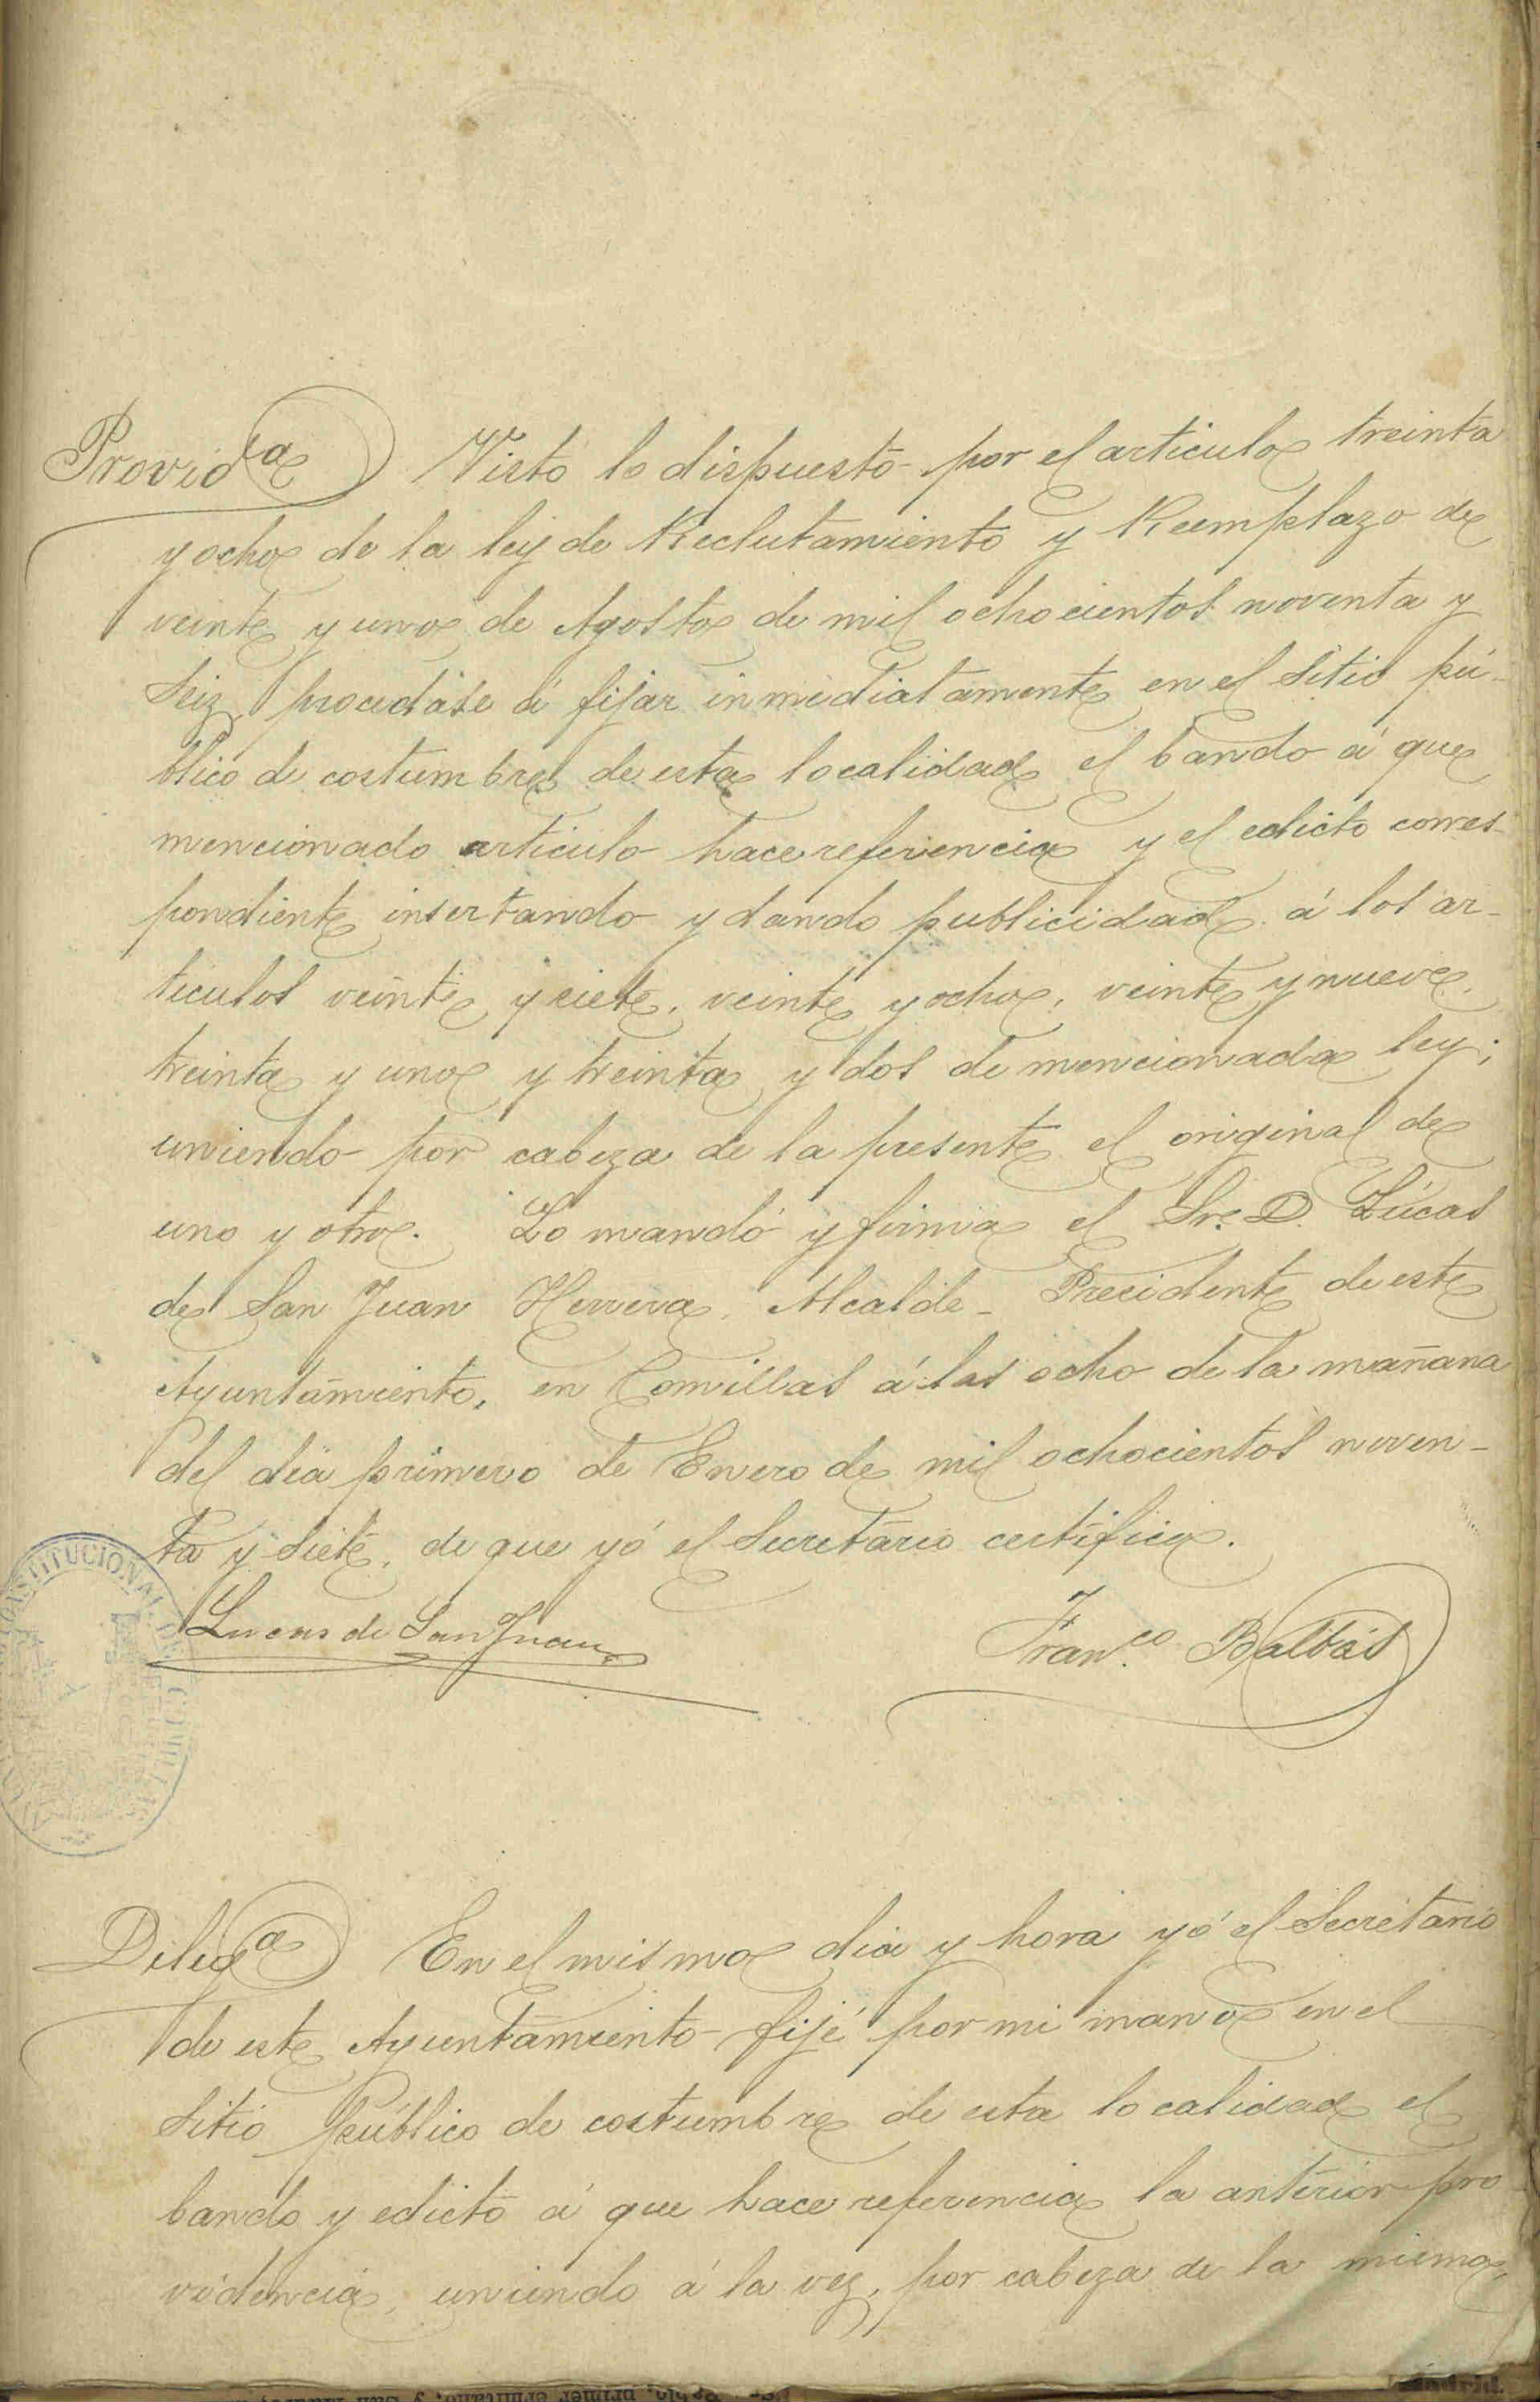 Provid.ª Visto lo dispuesto por el articulo treinta
y ocho de la ley de Reclutamiento y Reemplazo de
veinte y uno de Agosto de mil ochocientos noventa y
seiz, procedase á fijar inmediatamente en el sitio pú-
blico de costumbre de esta localidad el bando á que
mencionado articulo hace referencia y el edicto corres-
pondiente insertando y dando publicidad á los ar-
ticulos veinte y siete, veinte y ocho, veinte y nueve,
treinta y uno y treinta y dos de mencionada ley;
uniendo por cabeza de la presente el original de
uno y otro. Lo mandó y firma el Sr. D. Lúcas
de San Juan Herrera, Alcalde-Presidente de este
Ayuntamiento, en Comillas á las ocho de la mañana
del dia primero de Enero de mil ochocientos noven-
ta y siete, de que yó el Secretario certifico.
Lucas de San Juan
Fran.co Balbás
CONSTITUCIONAL DE COMILLAS
Dilig.ª En el mismo dia y hora yó el Secretario
de este Ayuntamiento fijé por mi mano en el
sitio público de costumbre de esta localidad el
bando y edicto á que hace referencia la anterior pro
videncia, uniendo á la vez, por cabeza de la misma,